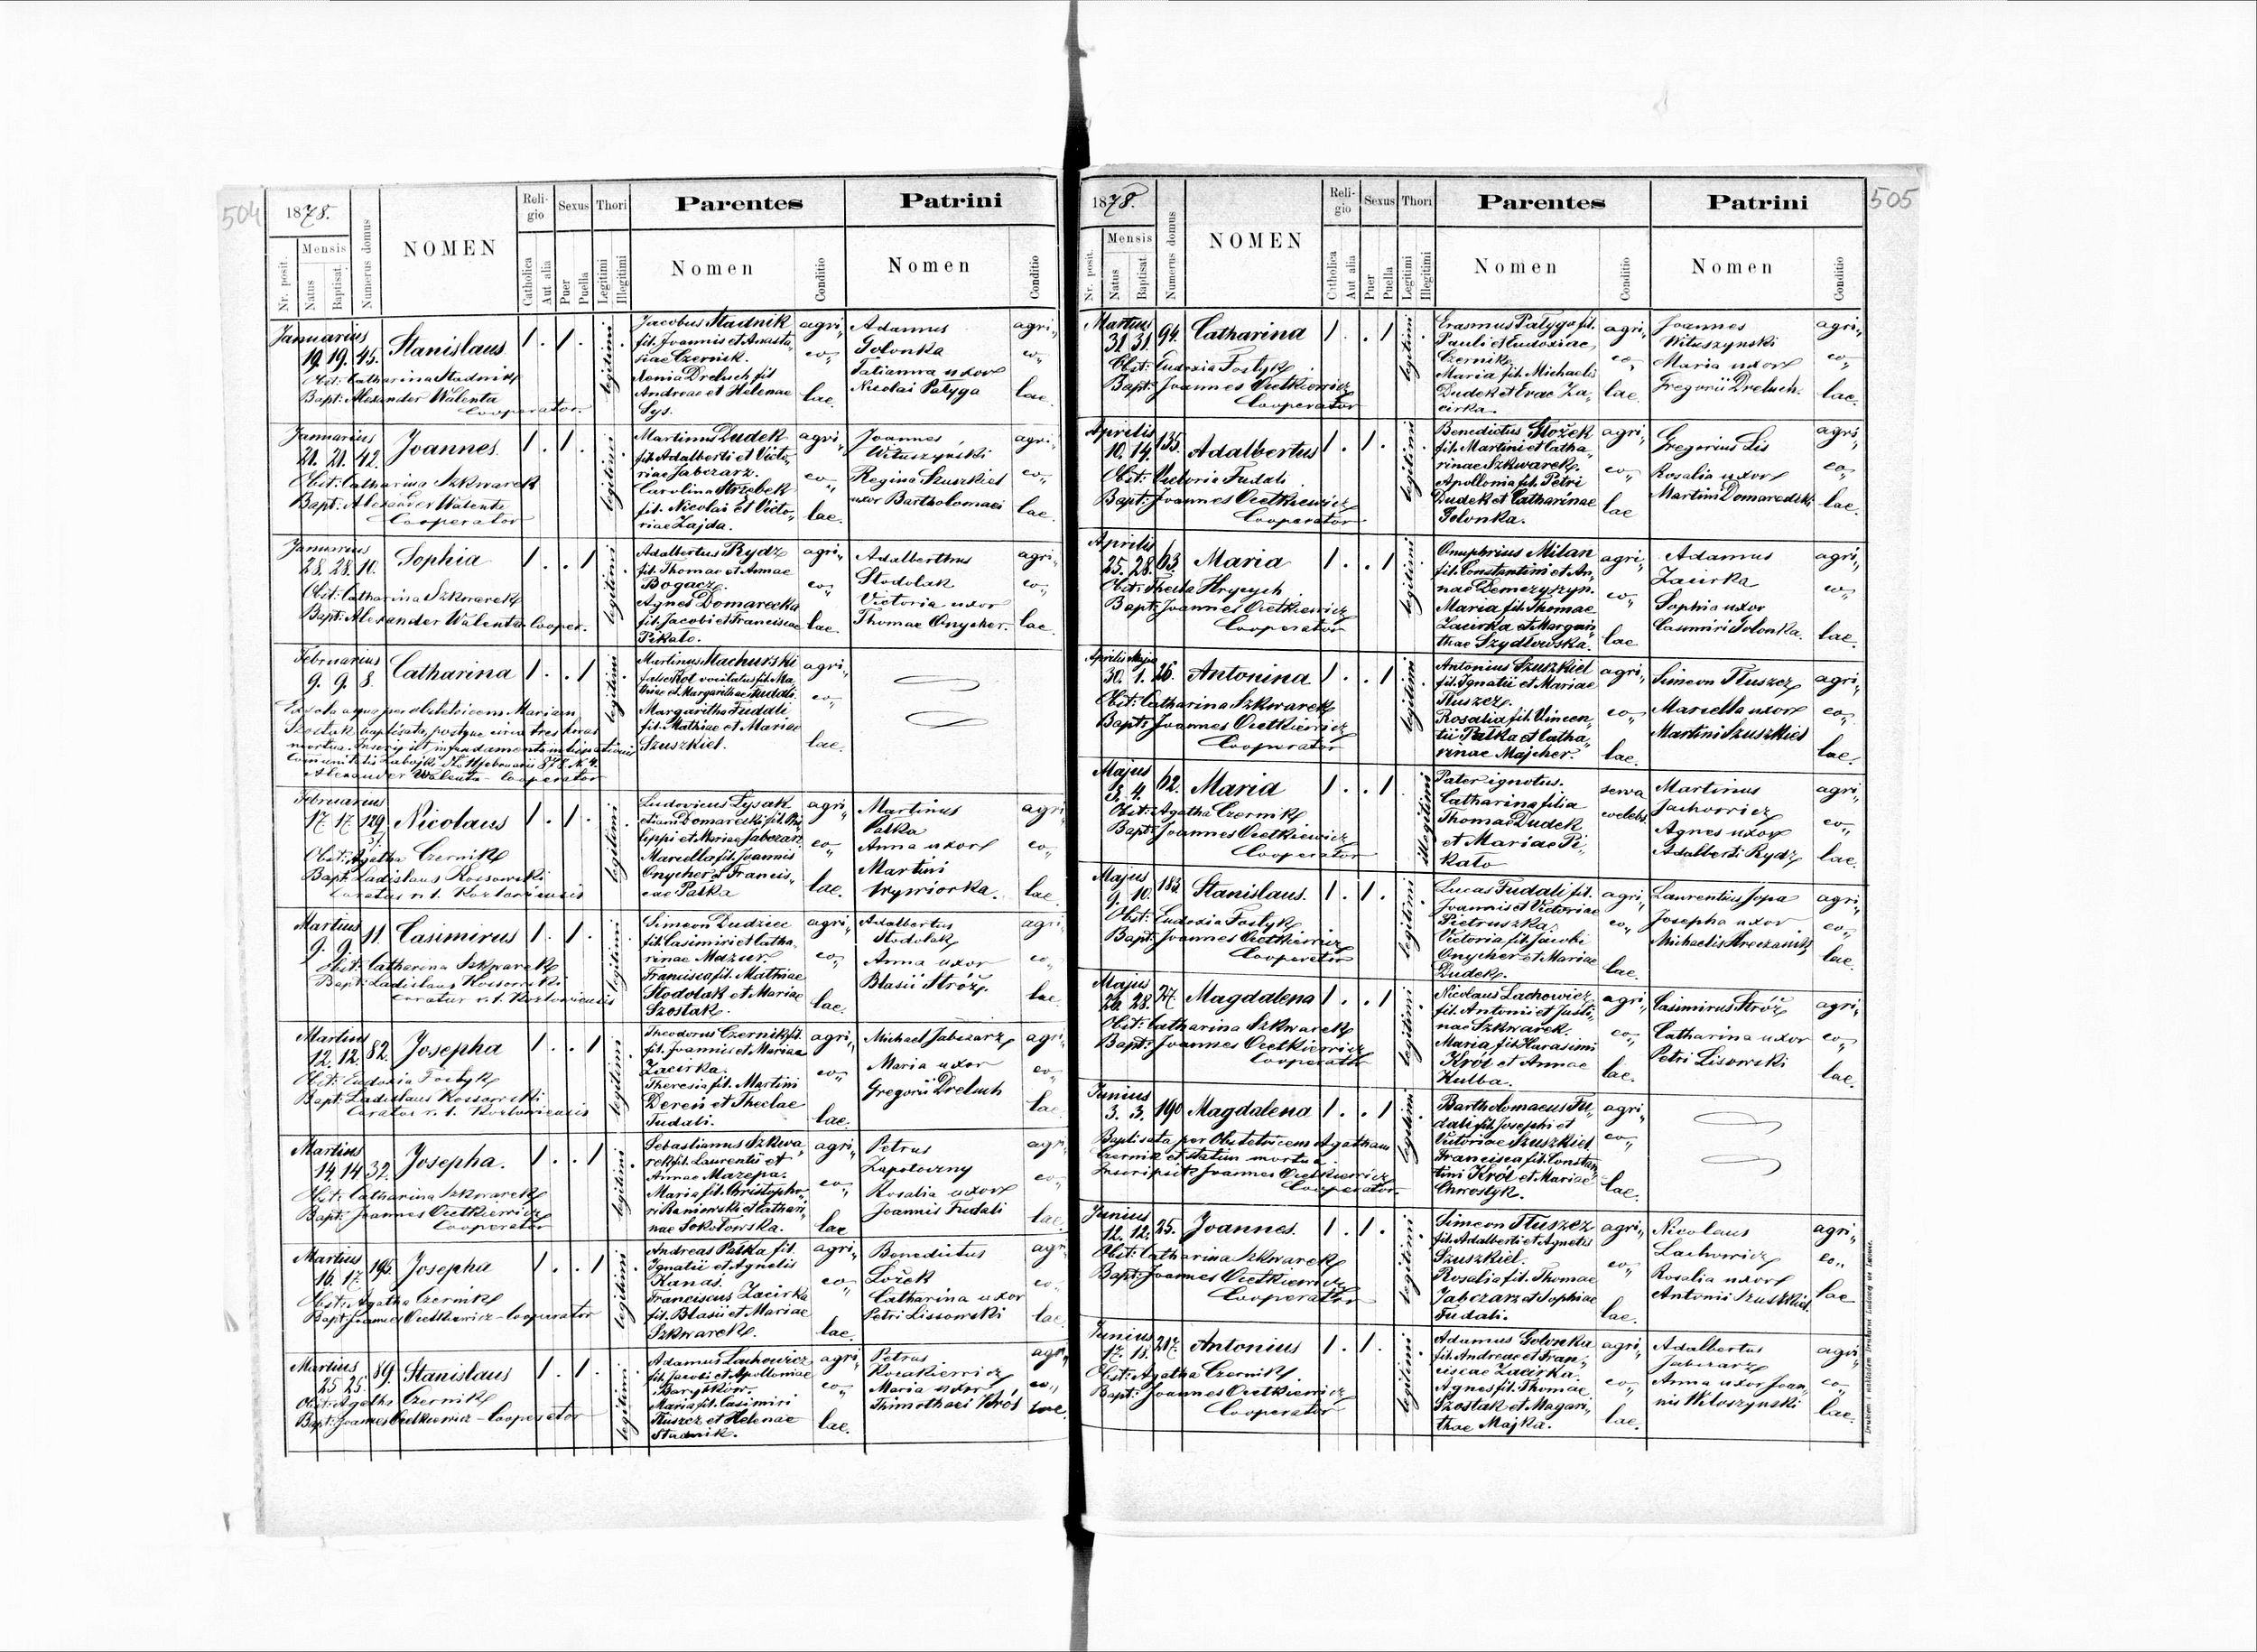 504
1878.
Nr. posit.
Mensis
Natus
Baptisat.
Numerus domus
NOMEN
Religio
Catholica
Aut alia
Sexus
Puer
Puella
Thori
Legitimi
Illegitimi
Parentes
Nomen
Conditio
Patrini
Nomen
Conditio
Januarius
19. 19. 45. Stanislaus 1 . 1 . legitimi
Obst: Catharina Stadnik
Bapt: Alexander Walenta
Cooperator
Jacobus Stadnik
fil. Joannis et Anasta„
siae Czernik.
Xenia Dreluch fil
Andreae et Helenae
Lys.
agri„
co„
lae.
Adamus
Golonka
Tatianna uxor
Nicolai Patyga
agri„
co„
lae.
Januarius
21. 21. 42. Joannes 1 . 1 . legitimi
Obst: Catharina Szkwarek
Bapt: Alexander Walenta
Cooperator
Martinus Dudek
fil. Adalberti et Victo„
riae Jabczarz.
Carolina Strzebek
fil. Nicolai et Victo„
riae Zajda.
agri„
co„
lae.
Joannes
Wituszyński
Regina Szuszkiel
uxor Bartholomaei
agri„
co„
lae.
Januarius
28. 28. 10. Sophia 1 . . 1 legitimi
Obst: Catharina Szkwarek
Bapt: Alexander Walenta Cooper.
Adalbertus Rydz
fil. Thomae et Annae
Bogacz.
Agnes Domarecka
fil. Jacobi et Franciscae
Pikato.
agri„
co„
lae.
Adalberthus
Stodolak
Victoria uxor
Thomae Onycher.
agri„
co„
lae.
Februarius
9. 9. 8. Catharina 1 . . 1 legitimi
Ex sola aqua per obstetricem Mariam
Szostak baptisata, postque circa tres horas
mortua.
Alexander Walenta Cooperator
Martinus Machurski
false Kot vocitatus fil. Ma„
thiae et Margarithae Fudali.
Margaritha Fudali
fil. Mathiae et Mariae
Szuszkiel.
agri„
co„
lae.
Februarius
17. 17. 129. Nicolaus 1 . 1 . legitimi
Obst: Agatha Czernik
Bapt: Ladislaus Kossowski
Curatus r. l. Kortoviensis
Ludovicus Lysak
etiam Domarecki fil. Phi„
lippi et Mariae Jabczarz
Marcella fil. Joannis
Onycher et Francis„
cae Patka
agri„
co„
lae.
Martinus
Patka
Anna uxor
Martini
Krywiorka.
agri
co„
lae.
Martius
9. 9. 11. Casimirus 1 . 1 . legitimi
Obst: Catharina Szkwarek
Bapt: Ladislaus Kossowski
Curatus r. l. Kortoviensis
Simeon Dudziec
fil. Casimiri et Catha„
rinae Mazur.
Francisca fil. Mathiae
Stodolak et Mariae
Szostak.
agri„
co„
lae.
Adalbertus
Stodolak
Anna uxor
Blasii Stróż.
agri
co„
lae.
Martius
12. 12. 82. Josepha 1 . . 1 legitimi
Obst: Eudoxia Fostyk
Bapt: Ladislaus Kossowski
Curatus r. l. Kortoviensis
Theodorus Czernik fil.
fil. Joannis et Mariae
Zacirka.
Theresia fil. Martini
Dereń et Theclae
Fudali.
agri„
co„
lae.
Michael Jabczarz
Maria uxor
Gregorii Dreluch
agri„
co„
lae.
Martius
14. 14 32. Josepha. 1 . . 1 legitimi
Obst: Catharina Szkwarek
Bapt: Joannes Ocetkiewicz
Cooperator
Sebastianus Szkwa„
rek fil. Laurentii et
Annae Mazepa.
Maria fil. Christopho„
ri Raniowski et Cathari„
nae Sokołowska.
agri„
co„
lae
Petrus
Zapotoczny
Rosalia uxor
Joannis Fudali
agri„
co„
lae.
Martius
16. 17. 195. Josepha 1 . . 1 legitimi
Obst: Agatha Czernik
Bapt: Joannes Ocetkiewicz - Cooperator
Andreas Patka fil.
Ignatii et Agnetis
Kanas.
Franciscus Zacirka
fil. Blasii et Mariae
Szkwarek.
agri„
co„
lae.
Benedictus
Lożek
Catharina uxor
Petri Lissowski
agri
co„
lae.
Martius
25. 25. 89. Stanislaus 1 . 1 . legitimi
Obst: Agatha Czernik
Bapt: Joannes Ocetkiewicz - Cooperator
Adamus Lachowicz
fil. Jacobi et Apolloniae
Baryczkow.
Maria fil. Casimiri
Tłuszcz et Helenae
Stadnik.
agri„
co„
lae.
Petrus
Kosakiewicz
Maria uxor
Thimothaei Król
agri„
co„
lae.
505
1878.
Nr. posit.
Mensis
Natus
Baptisat.
Numerus domus
NOMEN
Religio
Catholica
Aut alia
Sexus
Puer
Puella
Thori
Legitimi
Illegitimi
Parentes
Nomen
Conditio
Patrini
Nomen
Conditio
Martius
31. 31. 94. Catharina 1 . . 1 legitimi
Obst: Eudoxia Fostyk
Bapt: Joannes Ocetkiewicz
Cooperator
Erasmus Patyga fil.
Pauli et Eudoxiae
Czernik.
Maria fil. Michaelis
Dudek et Evae Za„
cirka.
agri„
co„
lae.
Joannes
Wituszynski
Maria uxor
Gregorii Dreluch.
agri„
co„
lae.
Aprilis
10. 14. 135. Adalbertus 1 . 1 . legitimi
Obst: Victoria Fudali
Bapt: Joannes Ocetkiewicz
Cooperator
Benedictus Stożek
fil. Martini et Catha„
rinae Szkwarek.
Apollonia fil. Petri
Dudek et Catharinae
Golonka.
agri„
co„
lae
Gregorius Lis
Rosalia uxor
Martini Domaredzki
agri„
co„
lae.
Aprilis
25. 28. 63. Maria 1 . . 1 legitimi
Obst: Thecla Hrycych
Bapt: Joannes Ocetkiewicz
Cooperator
Onuphrius Milan
fil. Constantini et An„
nae Demczyszyn.
Maria fil. Thomae
Zacirka et Margari„
thae Szydłowska.
agri„
co„
lae
Adamus
Zacirka
Sophia uxor
Casimiri Golonka.
agri„
co„
lae.
Aprilis Majus
30. 1. 26. Antonina 1 . . 1 legitimi
Obst: Catharina Szkwarek
Bapt: Joannes Ocetkiewicz
Cooperator
Antonius Szuszkiel
fil. Ignatii et Mariae
Tłuszcz.
Rosalia fil. Vincen„
tii Patka et Catha„
rinae Majcher.
agri„
co„
lae.
Simeon Tłuszcz
Marcella uxor
Martini Szuszkiel
agri„
co„
lae.
Majus
3. 4. 62. Maria 1 . . 1 illegitimi
Obst: Agatha Czernik
Bapt: Joannes Ocetkiewicz
Cooperator
Pater ignotus.
Catharina filia
Thomae Dudek
et Mariae Pi„
kato
serva
coelebs.
Martinus
Jachowicz
Agnes uxor
Adalberti Rydz
agri„
co„
lae.
Majus
9. 10. 182. Stanislaus. 1 . 1 . legitimi
Obst: Eudoxia Fostyk
Bapt: Joannes Ocetkiewicz
Cooperator
Lucas Fudali fil.
Joannis et Victoriae
Pietruszka.
Victoria fil. Jacobi
Onycher et Mariae
Dudek.
agri„
co„
lae.
Laurentius Jopa
Josepha uxor
Michaelis
agri„
co„
lae.
Majus
26. 28. 27. Magdalena 1 . . 1 legitimi
Obst: Catharina Szkwarek
Bapt: Joannes Ocetkiewicz
Cooperator
Nicolaus Lachowicz
fil. Antonii et Justi„
nae Szkwarek.
Maria fil. Harasimi
Król et Annae
Kulba.
agri„
co„
lae.
Casimirus Stróż
Catharina uxor
Petri Lisowski
agri„
co„
lae.
Junius
3. 3. 190 Magdalena 1 . . 1 legitimi
Baptisata per Obstetricem Agatham
Czernik et statim mortua.
Inscripsit Joannes Ocetkiewicz
Cooperator.
Bartholomaeus Fu„
dali fil. Josephi et
Victoriae Szuszkiel
Francisca fil. Constan„
tini Król et Mariae
Chrostyk.
agri„
co„
lae.
Junius
12. 12. 25. Joannes. 1 . 1 . legitimi
Obst: Catharina Szkwarek
Bapt: Joannes Ocetkiewicz
Cooperator
Simeon Tłuszcz
fil. Adalberti et Agnetis
Szuszkiel.
Rosalia fil. Thomae
Jabczarz et Sophiae
Fudali.
agri„
co„
lae.
Nicolaus
Lachowicz
Rosalia uxor
Antonii Szuszkiel.
agri„
co„
lae
Junius
17. 18. 217. Antonius 1 . 1 . legitimi
Obst: Agatha Czernik.
Bapt: Joannes Ocetkiewicz
Cooperator
Adamus Golonka
fil. Andreae et Fran„
ciscae Zacirka.
Agnes fil. Thomae
Szostak et Magari„
thae Majka.
agri„
co„
lae.
Adalbertus
Jabczarz
Anna uxor Joan„
nis Wiloszynski
agri„
co„
lae.